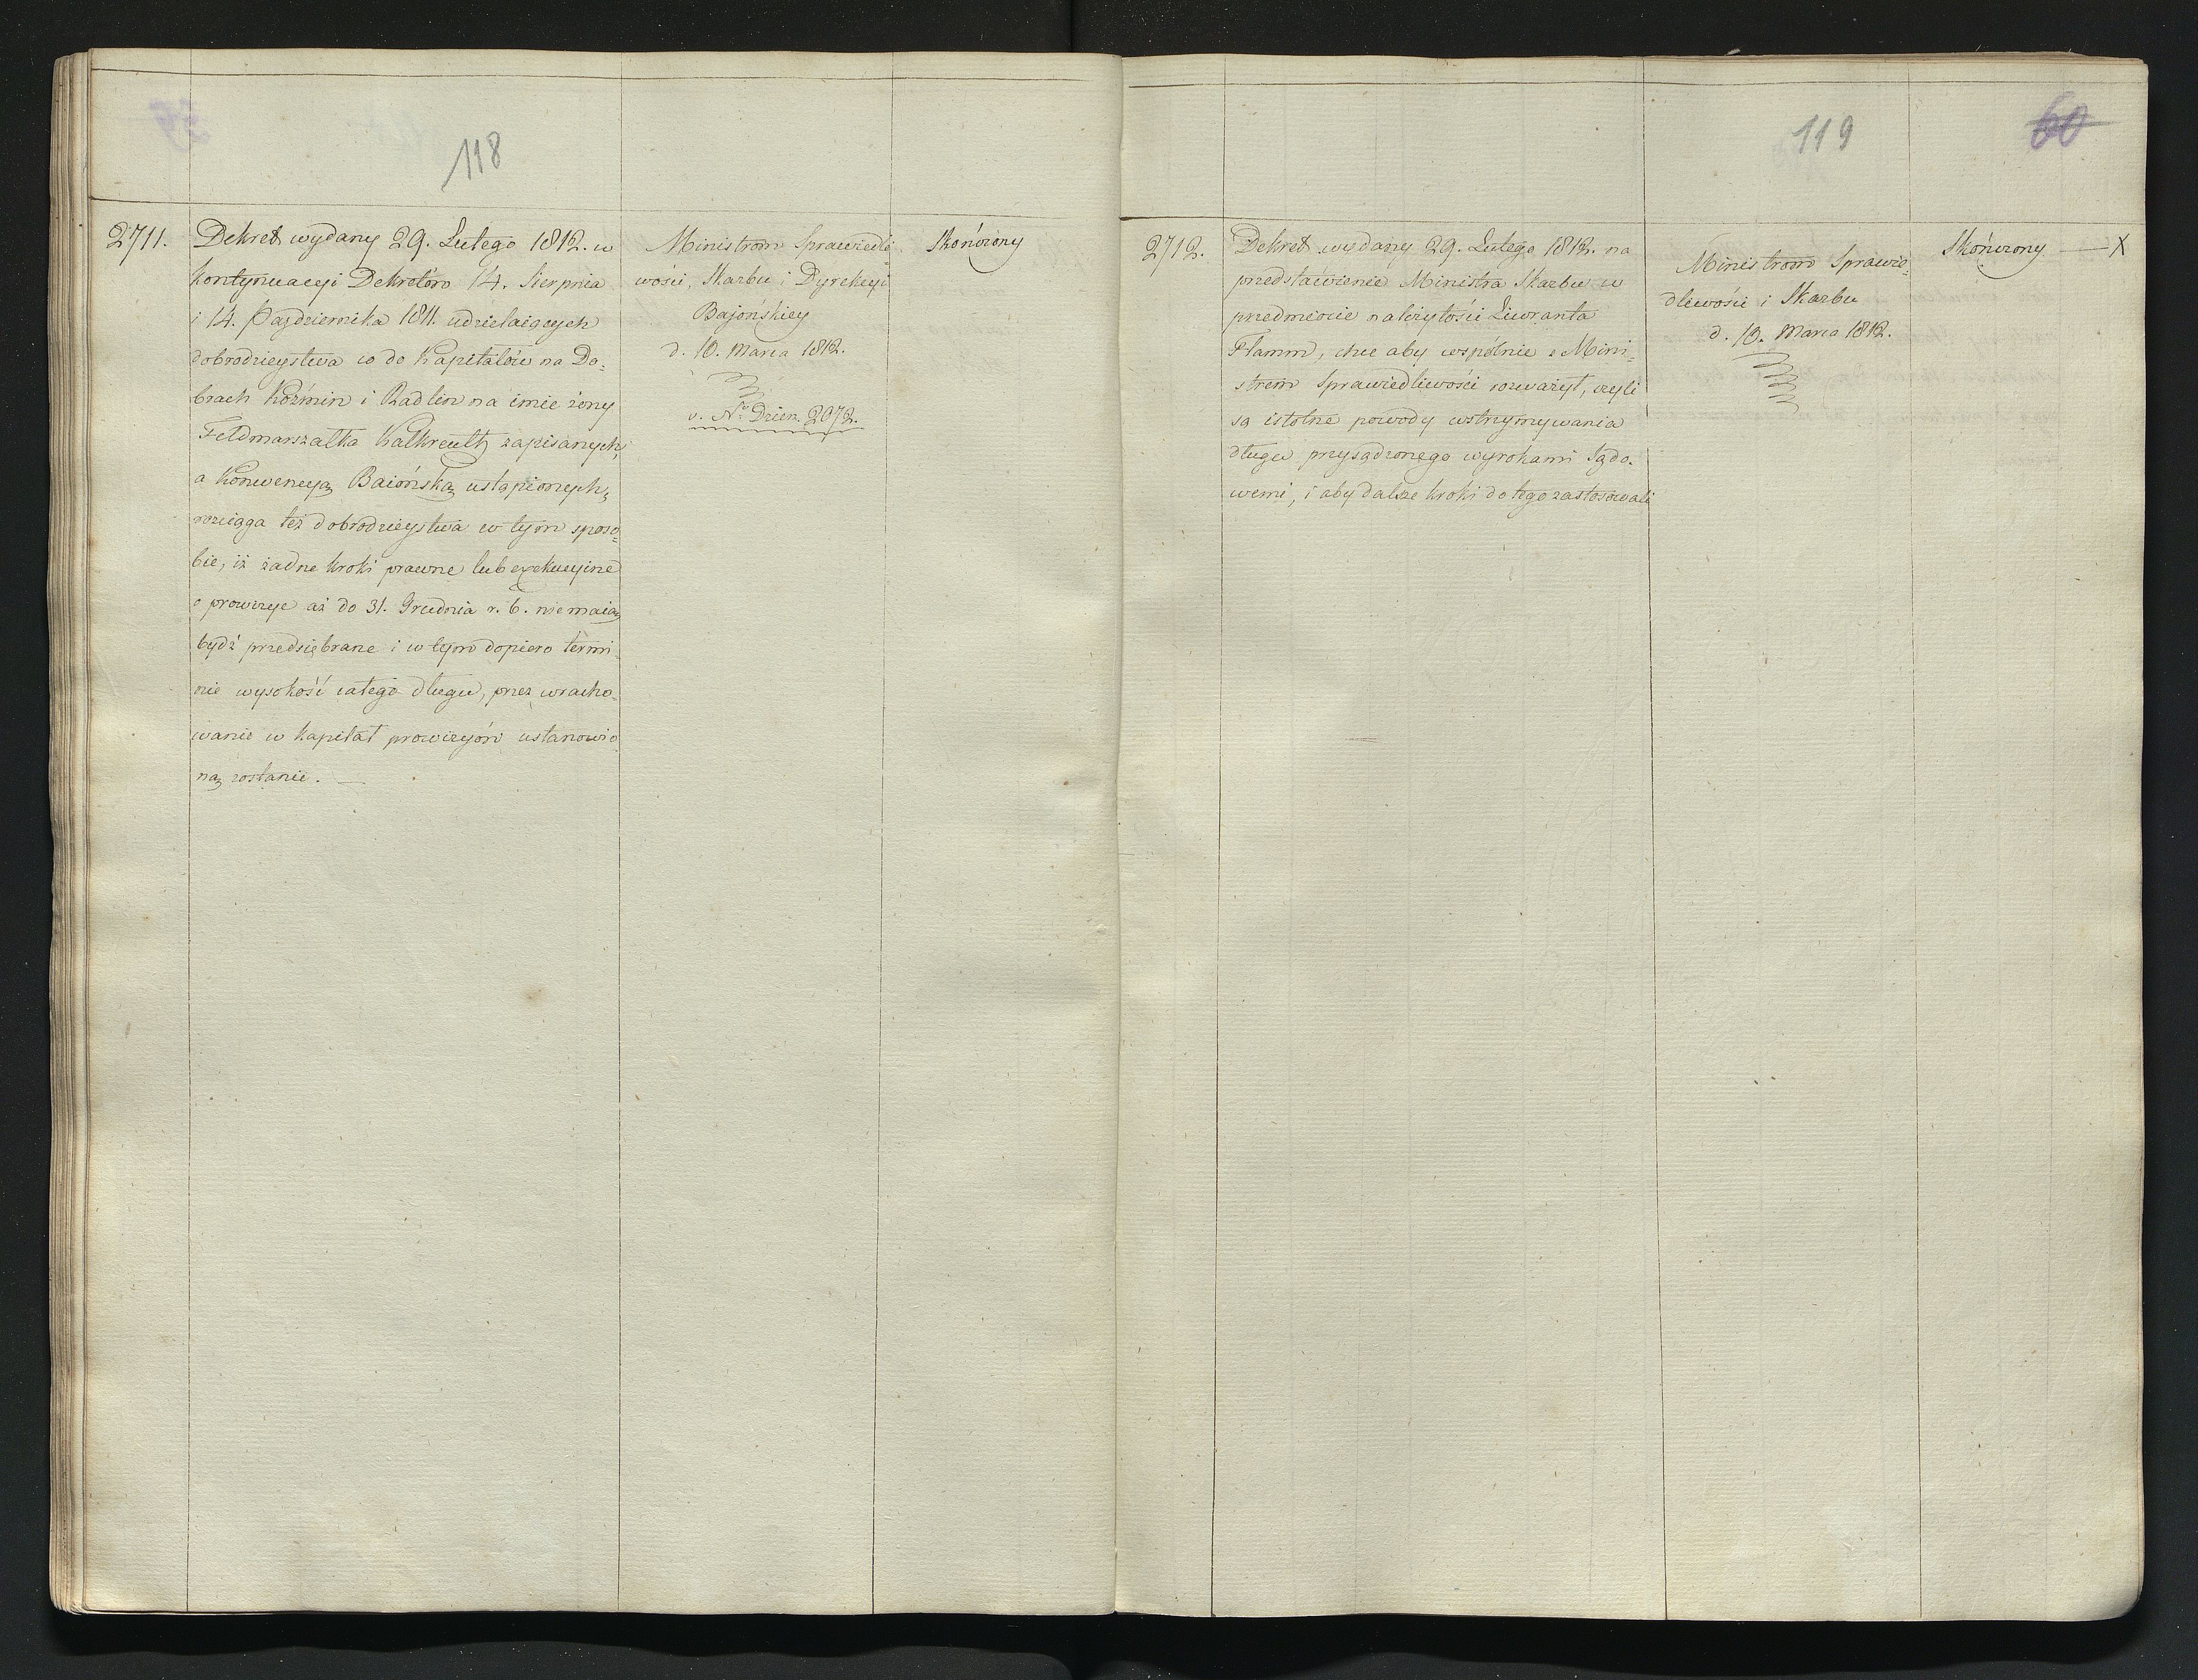 118
2711.
Dekret wydany 29. Lutego 1812. w
kontynuacyi Dekretów 14. Sierpnia
i 14. Pazdziernika 1811. udzielaiących
dobrodzieystwa co do Kapitałów na Do=
brach Koźmin i Radlin na imie żony
Feldmarszałka Kalkreuth zapisanych,
a Konwencyą Baiońską ustąpionych,
rozciąga też dobrodzieystwa w tym sposo=
bie, iż żadne kroki prawne lub exekucyine
o prowizye aż do 31. Grudnia r. b. nie maią
bydź przedsiębrane i w tym dopiero termi=
nie wysokość całego długu, przez wracho=
wanie w kapitał prowizyów ustanowio
ną zostanie. —
Ministrom Sprawiedli=
wosci, Skarbu i Dyrekcyi
Bajońskiey
d. 10. Marca 1812.
v. No Dzien. 2072.
Skończony
119
60
2712.
Dekret wydany 29. Lutego 1812. na
przedstawienie Ministra Skarbu w
przedmiocie należytości Liweranta
Flamm, chce aby wspólnie z Mini=
strem Sprawiedliwości rozważył, czyli
są istotne powody wstrzymywania
długu przysądzonego wyrokami Sądo=
wemi, i aby dalsze kroki do tego zastosowali
Ministrom Sprawie=
dliwości i Skarbu
d. 10. Marca 1812.
Skończony — X